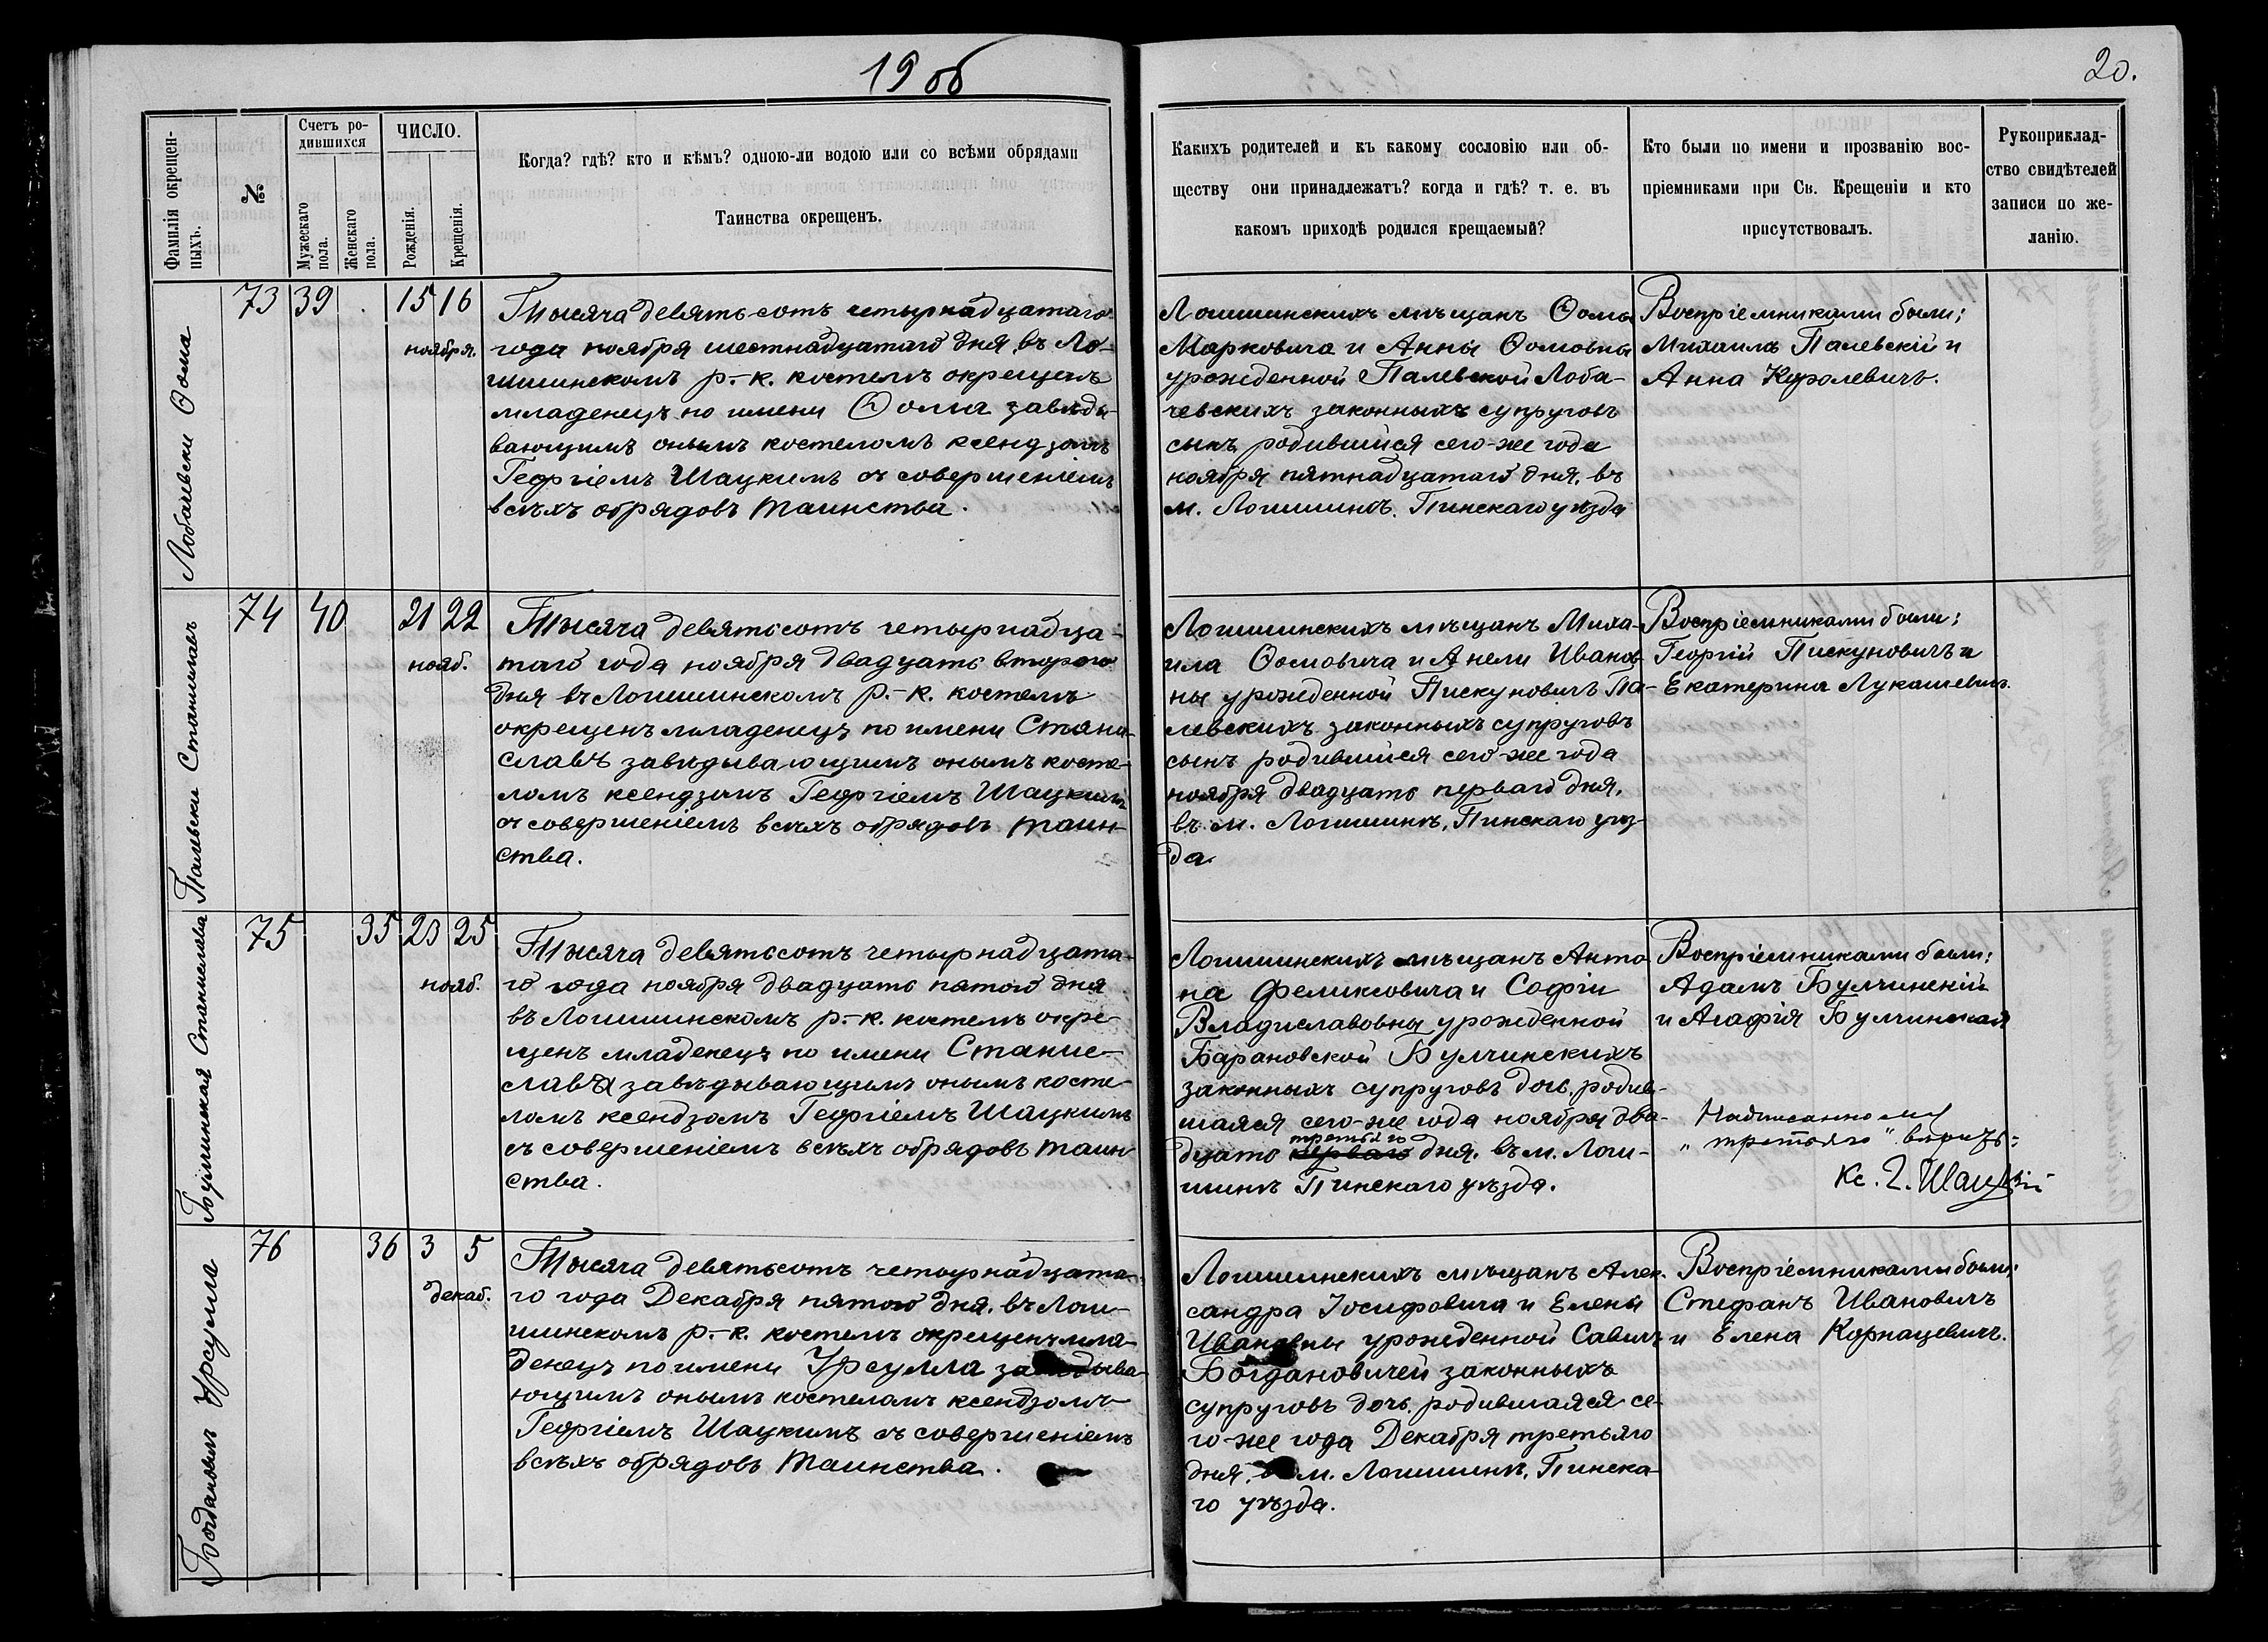 19об
20.
Фамилія окрещен-
ныхъ.
№
Счетъ ро-
дившихся
Мужескаго
пола.
Женскаго
пола.
ЧИСЛО.
Рожденія.
Крещенія.
Когда? гдѣ? кто и кѣмъ? одною-ли водою или со всѣми обрядами
Таинства окрещенъ.
Какихъ родителей и къ какому сословію или об-
ществу они принадлежатъ? когда и гдѣ? т. е. въ
какомъ приходѣ родился крещаемый?
Кто были по имени и прозванію вос-
пріемниками при Св. Крещеніи и кто
присутствовалъ.
Рукоприклад-
ство свидѣтелей
записи по же-
ланію.
Лобачевски Ѳома
73 39 . 15 16
ноября.
Тысяча девятьсотъ четырнадцатаго
года ноября шестнадцатаго дня, въ Ло-
гишинскомъ р.-к. костелѣ окрещенъ
младенецъ по имени Ѳома завѣды-
вающимъ онымъ костеломъ ксендзомъ
Георгіемъ Шацкимъ съ совершеніемъ
всѣхъ обрядовъ таинства.
Логишинскихъ мѣщанъ Ѳомы
Марковича и Анны Ѳомовны
урожденной Палевской Лоба-
чевскихъ законныхъ супруговъ
сынъ, родившійся сего-же года
ноября пятнадцатаго дня, въ
м. Логишинѣ, Пинскаго уѣзда
Воспріемниками были:
Михаилъ Палевскій и
Анна Королевичъ.
Пальвски Станиславъ
74 40 21 22
нояб.
Тысяча девятьсотъ четырнадца-
таго года ноября двадцать второго
дня въ Логишинскомъ р.-к. костелѣ
окрещенъ младенецъ по имени Стани-
славъ завѣдывающимъ онымъ косте-
ломъ ксендзомъ Георгіемъ Шацкимъ
съ совершеніемъ всѣхъ обрядовъ таин-
ства.
Логишинскихъ мѣщанъ Миха-
ила Ѳомовича и Анели Иванов-
ны урожденной Пискуновичъ Па-
левскихъ законныхъ супруговъ
сынъ родившійся сего-же года
ноября двадцать перваго дня,
въ м. Логишинѣ, Пинскаго уѣз-
да.
Воспріемниками были:
Георгій Пискуновичъ и
Екатерина Лукашевичъ.
Булчинская Станислава
75 35 23 25
нояб.
Тысяча девятьсотъ четырнадцата-
го года ноября двадцать пятого дня
въ Логишинскомъ р.-к. костелѣ окре-
щенъ младенецъ по имени Станис-
лава завѣдывающимъ онымъ косте-
ломъ ксендзомъ Георгіемъ Шацкимъ
съ совершеніемъ всѣхъ обрядовъ таин-
ства.
Логишинскихъ мѣщанъ Анто-
на Феликсовича и Софіи
Владиславовны урожденной
Барановской Булчинскихъ
законныхъ супруговъ дочь, родив-
шаяся сего-же года ноября два-
третьяго
дцать перваго дня, въ м. Логи-
шинѣ Пинскаго уѣзда.
Воспріемниками были:
Адамъ Булчинскій
и Агафія Булчинская
Надписанному
„третьяго" вѣрить:
Кс. Г. Шацкій
Богдановичъ Урсулла
76 36 3 5
декаб.
Тысяча девятьсотъ четырнадцата-
го года Декабря пятого дня, въ Логи-
шинскомъ р.-к. костелѣ окрещенъ мла-
денецъ по имени Урсулла завѣдыва-
ющимъ онымъ костеломъ ксендзомъ
Георгіемъ Шацкимъ съ совершеніемъ
всѣхъ обрядовъ таинства.
Логишинскихъ мѣщанъ Алек-
сандра Іосифовича и Елены
Ивановны урожденной Савичъ
Богдановичей законныхъ
супруговъ дочь, родившаяся се-
го-же года Декабря третьяго
дня, въ м. Логишинѣ, Пинска-
го уѣзда.
Воспріемниками были:
Стефанъ Ивановичъ
и Елена Корнацевичъ.